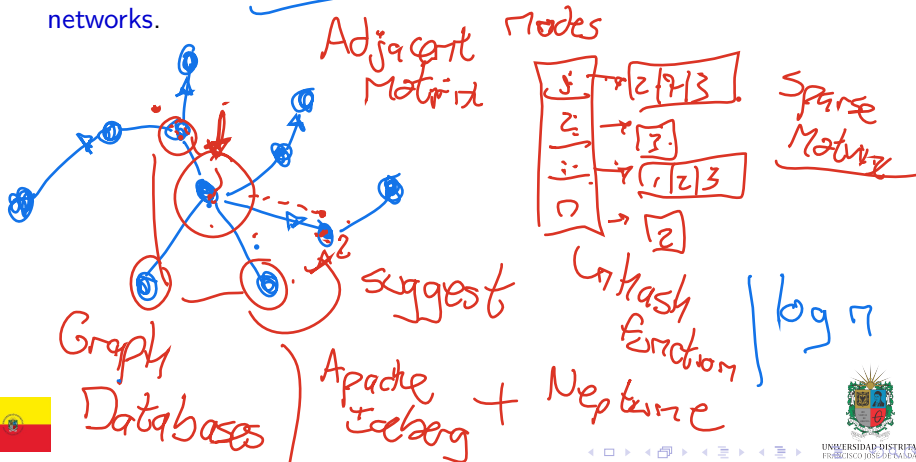 networks.
Adjacent
Matrix
nodes
j → 2|7|3
2 → 3
i → 1|2|3
n → 2
Sparse
Matrix
2
suggest
Hash
function
log n
Graph
Databases
Apache
Iceberg + Neptune
UNIVERSIDAD DISTRITAL
FRANCISCO JOSÉ DE CALDAS